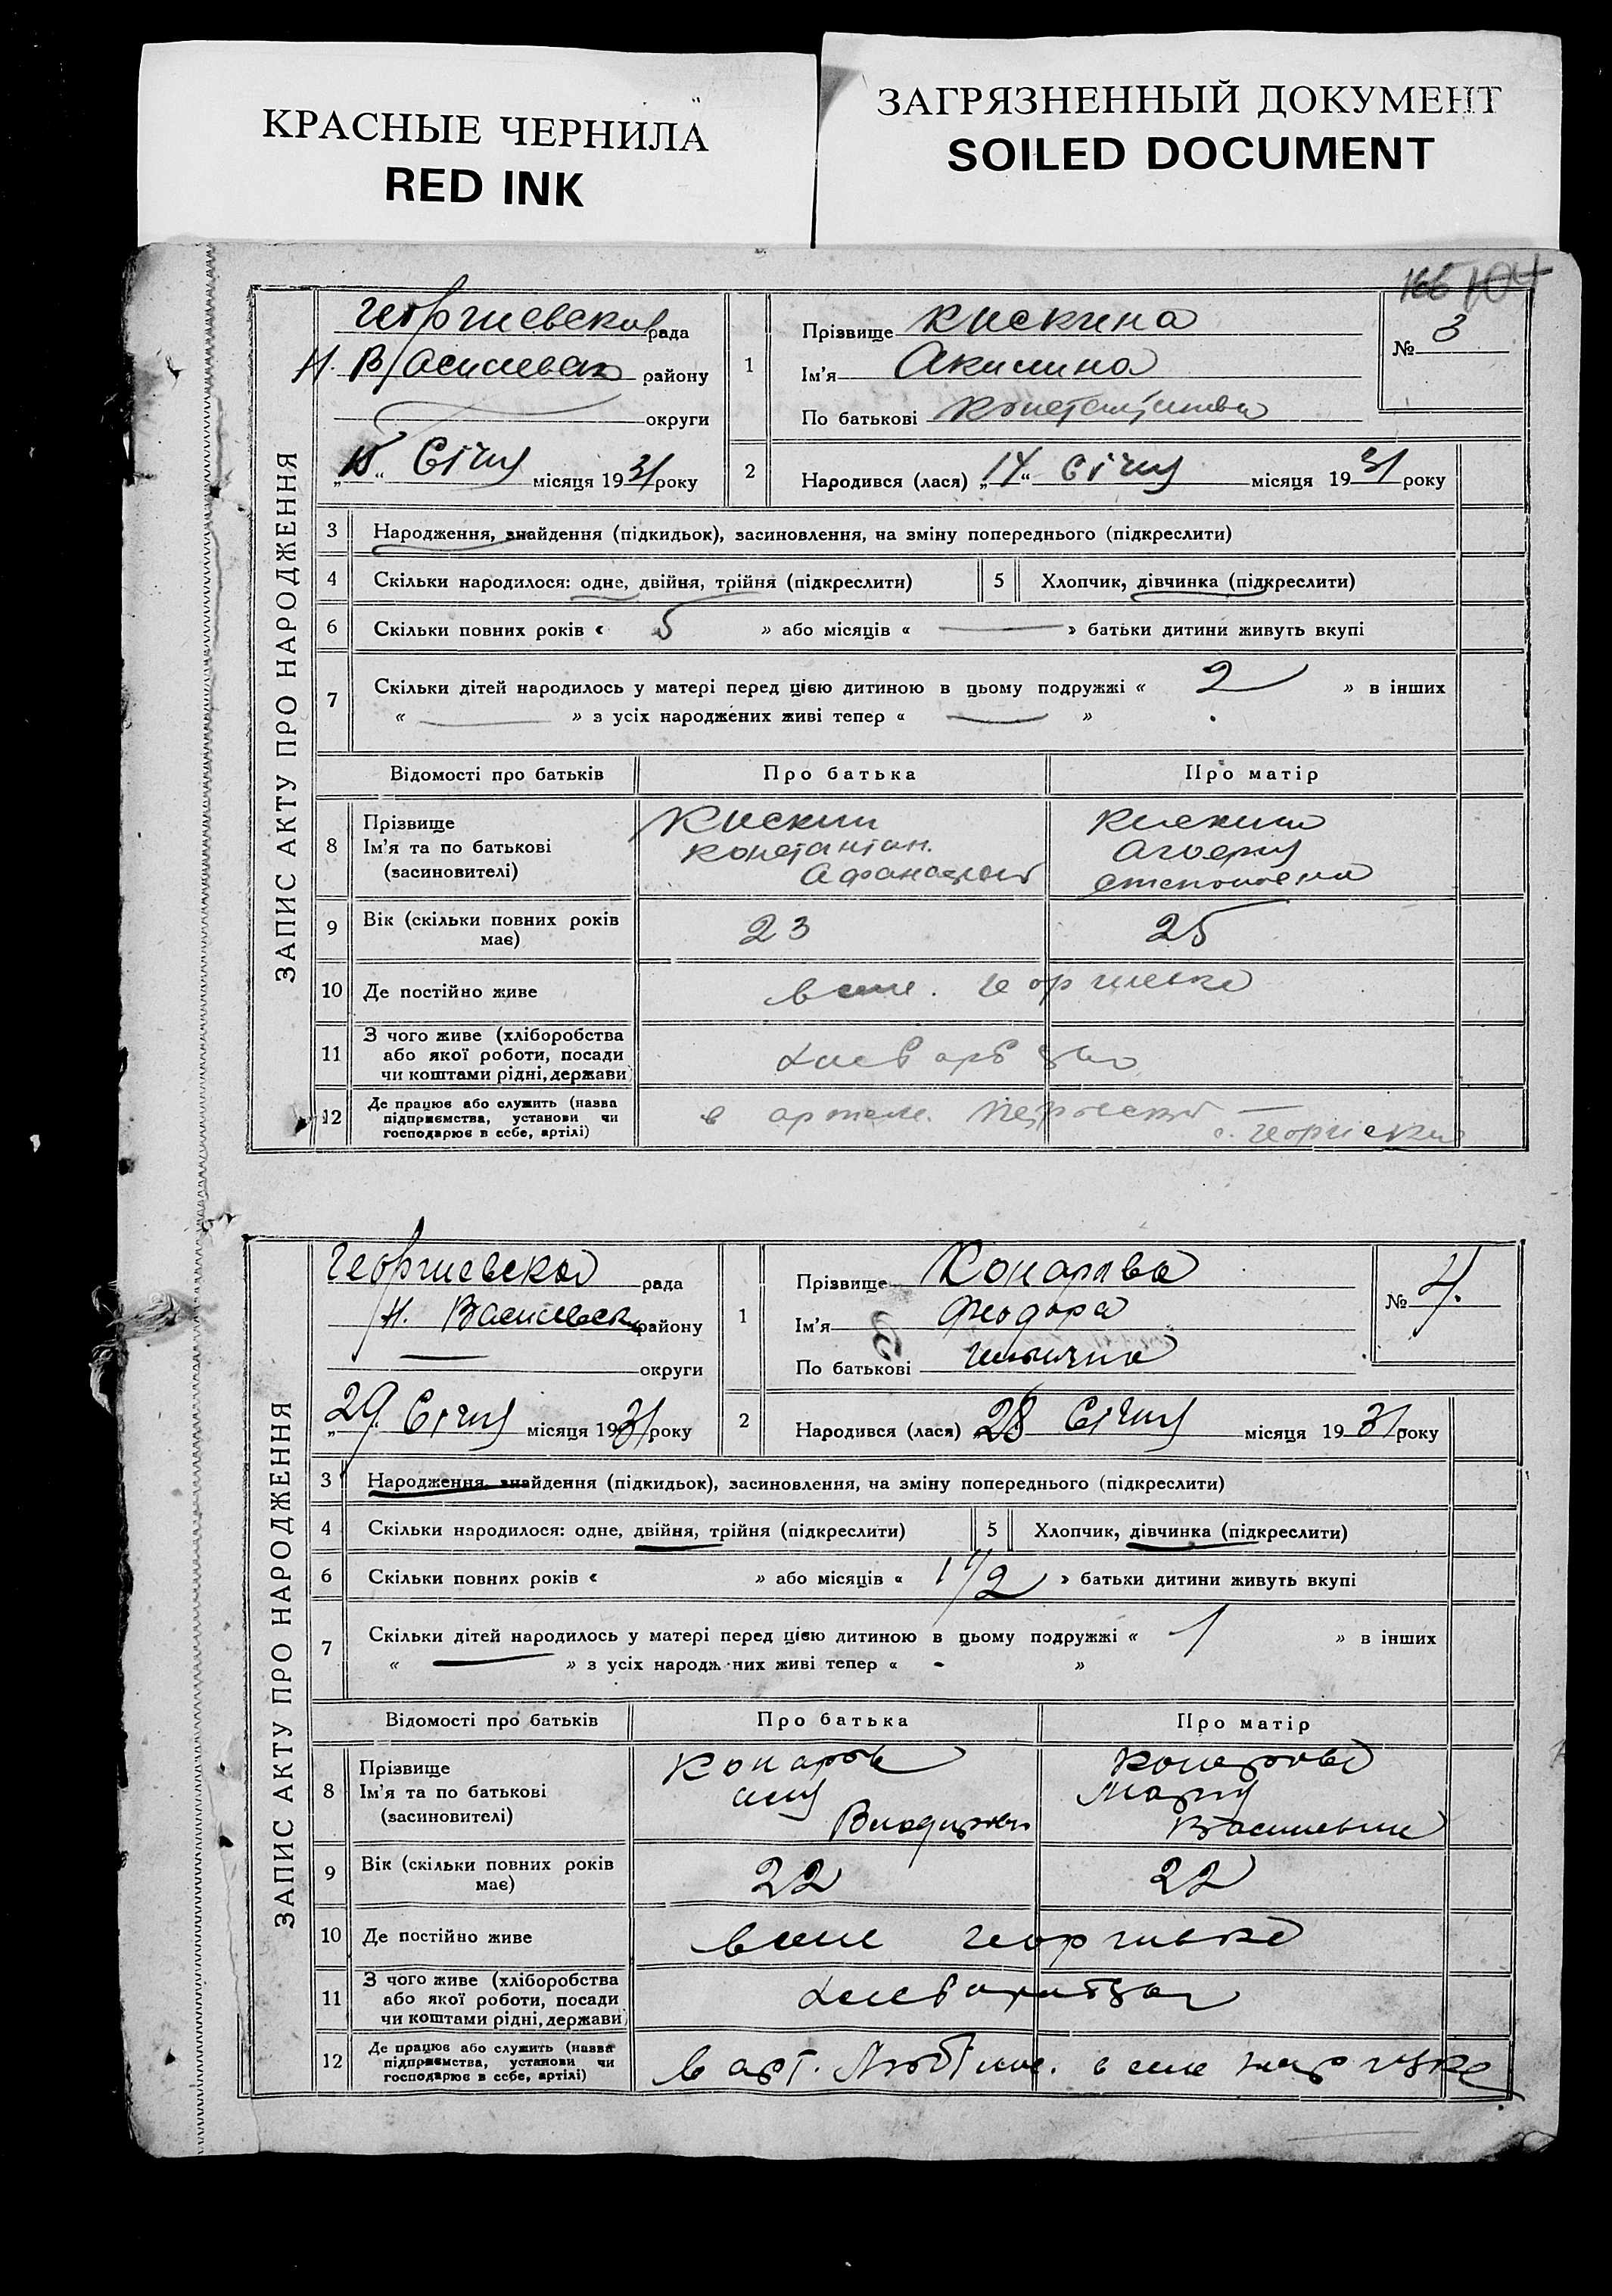 КРАСНЫЕ ЧЕРНИЛА
RED INK
ЗАГРЯЗНЕННЫЙ ДОКУМЕНТ
SOILED DOCUMENT
166 104
ЗАПИС АКТУ ПРО НАРОДЖЕННЯ
Георгиевская рада
Н. Василевск району
округи
15 Січня місяця 1931 року
1
Прізвище Кискина
Ім'я Акилина
По батькові Константинова
№ 3
2
Народився (лася) „14“ Січня місяця 1931 року
3 Народження, знайдення (підкидьок), засиновлення, на зміну попереднього (підкреслити)
4 Скільки народилося: одне, двійня, трійня (підкреслити)
5 Хлопчик, дівчинка (підкреслити)
6 Скільки повних років « 5 » або місяців « — » батьки дитини живуть вкупі
7 Скільки дітей народилось у матері перед цією дитиною в цьому подружжі « 2 » в інших
« — » з усіх народжених живі тепер « — »
Відомості про батьків Про батька Про матір
8 Прізвище
Ім'я та по батькові
(засиновителі)
Кискин
Константин
Кискина
Степановна
9 Вік (скільки повних років
має)
23 25
10 Де постійно живе
в селе Георгиевке
11 З чого живе (хліборобства
або якої роботи, посади
чи коштами рідні, держави)
12 Де працює або служить (назва
підприємства, установи чи
господарює в себе, артілі)
в артели с. Георгиевка
ЗАПИС АКТУ ПРО НАРОДЖЕННЯ
Георгиевская рада
Н. Василевск району
— округи
„29 Січня місяця 1931 року
1
Прізвище Конарова
Ім'я Феодора
По батькові Ильинична
№ 4.
2
Народився (лася) 28 Січня місяця 1931 року
3 Народження, знайдення (підкидьок), засиновлення, на зміну попереднього (підкреслити)
4 Скільки народилося: одне, двійня, трійня (підкреслити)
5 Хлопчик, дівчинка (підкреслити)
6 Скільки повних років « » або місяців « 1 1/2 » батьки дитини живуть вкупі
7 Скільки дітей народилось у матері перед цією дитиною в цьому подружжі « 1 » в інших
« — » з усіх народжених живі тепер « - »
Відомості про батьків Про батька Про матір
8 Прізвище
Ім'я та по батькові
(засиновителі)
Конаров
Илия
Конарова
Мария
9 Вік (скільки повних років
має)
22 22
10 Де постійно живе
в селе Георгиевке
11 З чого живе (хліборобства
або якої роботи, посади
чи коштами рідні, держави)
12 Де працює або служить (назва
підприємства, установи чи
господарює в себе, артілі)
в арт. в селе